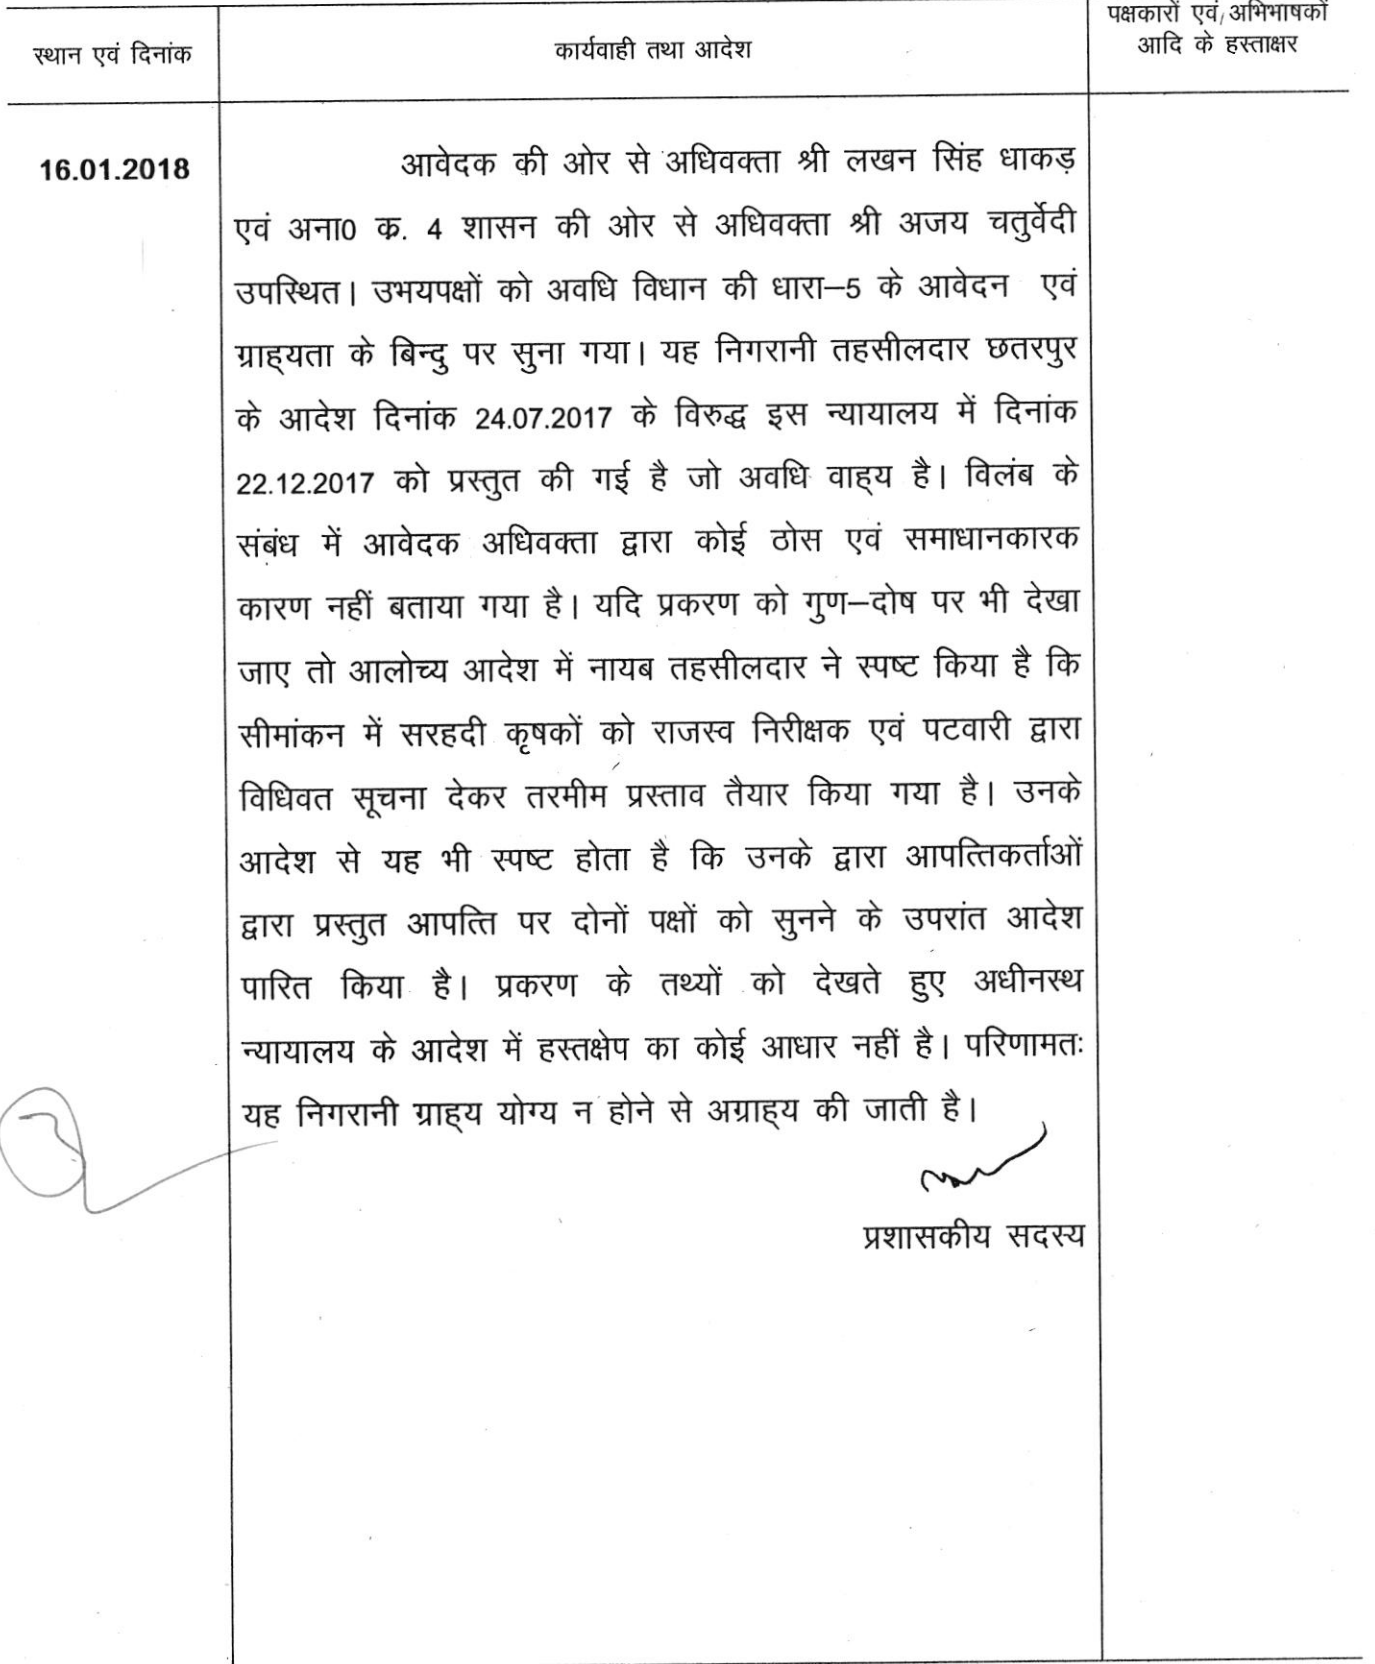 स्थान एवं दिनांक
कार्यवाही तथा आदेश
पक्षकारों एवं अभिभाषकों
आदि के हस्ताक्षर
16.01.2018
आवेदक की ओर से अधिवक्ता श्री लखन सिंह धाकड़
एवं अना0 क्र. 4 शासन की ओर से अधिवक्ता श्री अजय चतुर्वेदी
उपस्थित। उभयपक्षों को अवधि विधान की धारा–5 के आवेदन एवं
ग्राह्यता के बिन्दु पर सुना गया। यह निगरानी तहसीलदार छतरपुर
के आदेश दिनांक 24.07.2017 के विरुद्ध इस न्यायालय में दिनांक
22.12.2017 को प्रस्तुत की गई है जो अवधि वाह्य है। विलंब के
संबंध में आवेदक अधिवक्ता द्वारा कोई ठोस एवं समाधानकारक
कारण नहीं बताया गया है। यदि प्रकरण को गुण–दोष पर भी देखा
जाए तो आलोच्य आदेश में नायब तहसीलदार ने स्पष्ट किया है कि
सीमांकन में सरहदी कृषकों को राजस्व निरीक्षक एवं पटवारी द्वारा
विधिवत सूचना देकर तरमीम प्रस्ताव तैयार किया गया है। उनके
आदेश से यह भी स्पष्ट होता है कि उनके द्वारा आपत्तिकर्ताओं
द्वारा प्रस्तुत आपत्ति पर दोनों पक्षों को सुनने के उपरांत आदेश
पारित किया है। प्रकरण के तथ्यों को देखते हुए अधीनस्थ
न्यायालय के आदेश में हस्तक्षेप का कोई आधार नहीं है। परिणामतः
यह निगरानी ग्राह्य योग्य न होने से अग्राह्य की जाती है।
प्रशासकीय सदस्य